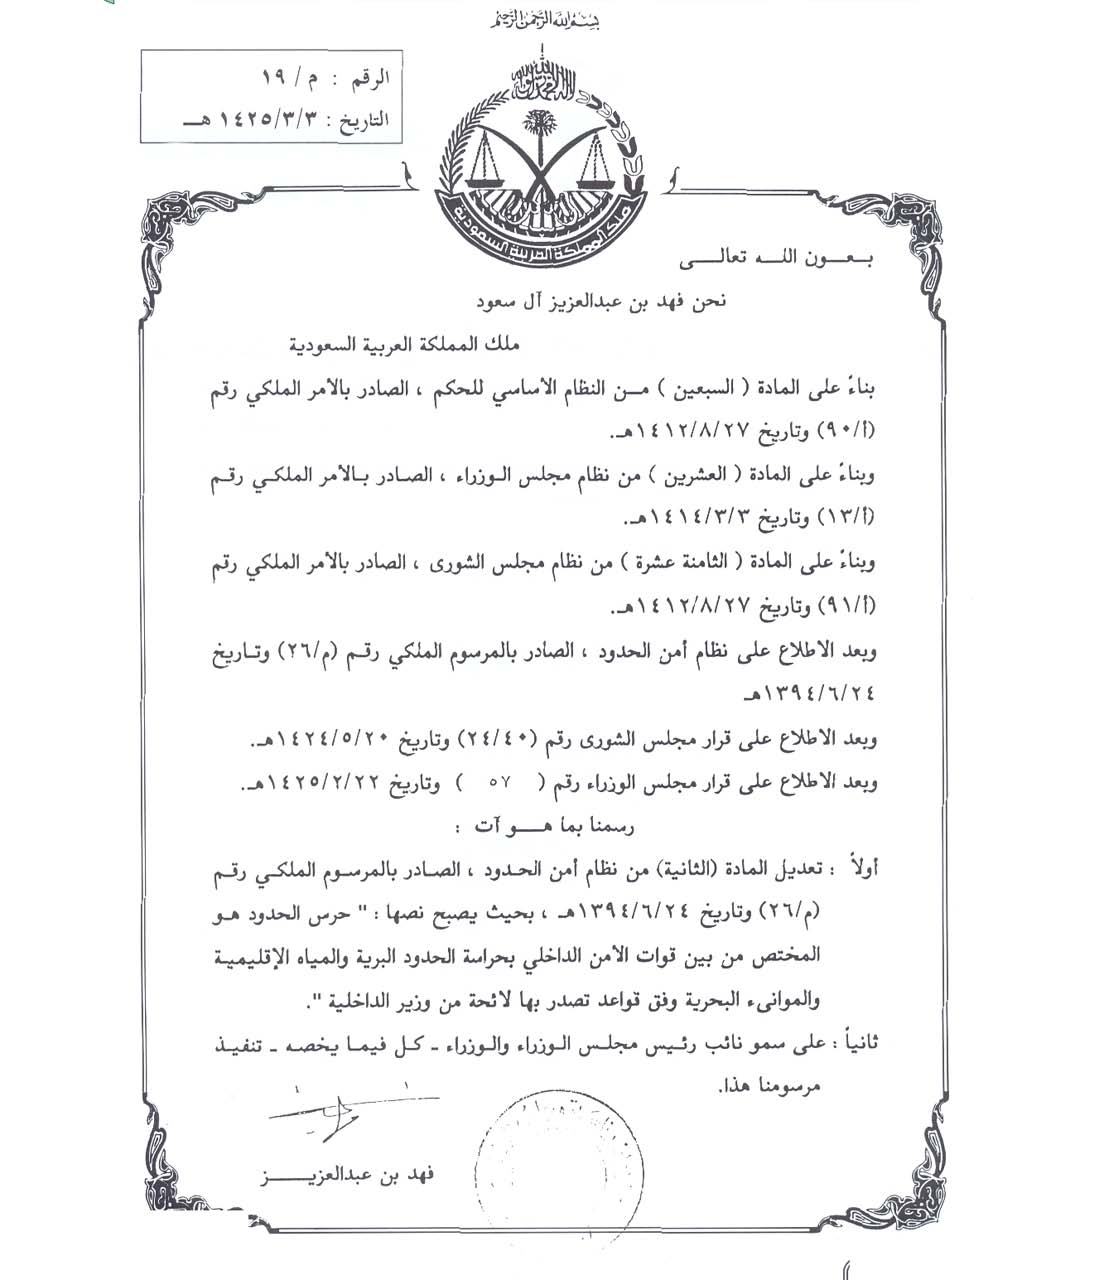 بسم الله الرحمن الرحيم
الرقم : م / ١٩
التاريخ : ١٤٢٥/٣/٣ هـ
لا إله إلا الله محمد رسول الله
ملك المملكة العربية السعودية
بعون الله تعالى
نحن فهد بن عبدالعزيز آل سعود
ملك المملكة العربية السعودية
بناءً على المادة ( السبعين ) من النظام الأساسي للحكم ، الصادر بالأمر الملكي رقم
(أ/٩٠) وتاريخ ١٤١٢/٨/٢٧هـ.
وبناءً على المادة ( العشرين ) من نظام مجلس الوزراء ، الصادر بالأمر الملكي رقم
(أ/١٣) وتاريخ ١٤١٤/٣/٣هـ.
وبناءً على المادة ( الثامنة عشرة ) من نظام مجلس الشورى ، الصادر بالأمر الملكي رقم
(أ/٩١) وتاريخ ١٤١٢/٨/٢٧هـ.
وبعد الاطلاع على نظام أمن الحدود ، الصادر بالمرسوم الملكي رقم (م/٢٦) وتاريخ
١٣٩٤/٦/٢٤هـ
وبعد الاطلاع على قرار مجلس الشورى رقم (٢٤/٤٠) وتاريخ ١٤٢٤/٥/٢٠هـ.
وبعد الاطلاع على قرار مجلس الوزراء رقم ( ٥٧ ) وتاريخ ١٤٢٥/٢/٢٢هـ.
رسمنا بما هو آت :
أولاً : تعديل المادة (الثانية) من نظام أمن الحدود ، الصادر بالمرسوم الملكي رقم
(م/٢٦) وتاريخ ١٣٩٤/٦/٢٤هـ ، بحيث يصبح نصها : " حرس الحدود هو
المختص من بين قوات الأمن الداخلي بحراسة الحدود البرية والمياه الإقليمية
والموانىء البحرية وفق قواعد تصدر بها لائحة من وزير الداخلية ".
ثانياً : على سمو نائب رئيس مجلس الوزراء والوزراء ـ كل فيما يخصه ـ تنفيذ
مرسومنا هذا.
فهد بن عبدالعزيز